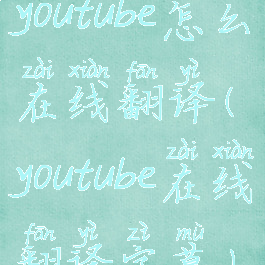 youtube怎么
zài xiàn fān yì
在线翻译(
zài xiàn
youtube在线
fān yì zì mù
翻译字幕)